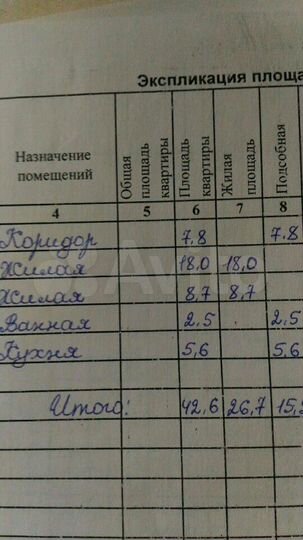 Экспликация площа
Назначение помещений | Общая площадь квартиры | Площадь квартиры | Жилая площадь | Подсобная
4 | 5 | 6 | 7 | 8
Коридор 7.8 7.8
Жилая 18,0 18,0
Жилая 8,7 8,7
Ванная 2,5 2,5
Кухня 5,6 5.6
Итого: 42,6 26,7 15,